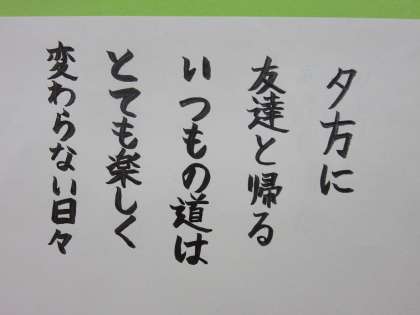 夕方に
友達と帰る
いつもの道は
とても楽しく
変わらない日々